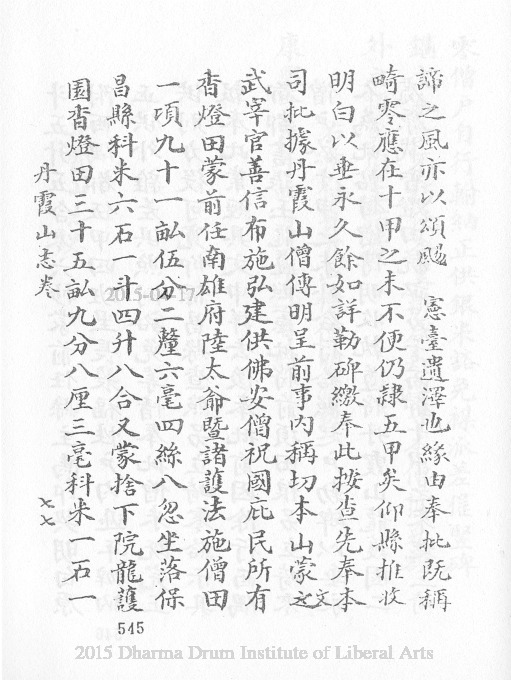 諦之風亦以頌颺　憲臺遺澤也緣由奉批既稱
畸零應在十甲之末不便仍隷五甲矣仰縣推收
明白以垂永久餘如詳勒碑繳奉此按查先奉本
司批據丹霞山僧傳明呈前事內稱切本山蒙文之
武宰官善信布施弘建供佛安僧祝國庇民所有
香燈田蒙前任南雄府陸太爺暨諸護法施僧田
一頃九十一畝伍分二釐六毫四絲八忽坐落保
昌縣科米六石一斗四升八合又蒙捨下院龍護
園香燈田三十五畝九分八厘三毫科米一石一
丹霞山志卷
七七
545
2015-04-17
2015 Dharma Drum Institute of Liberal Arts